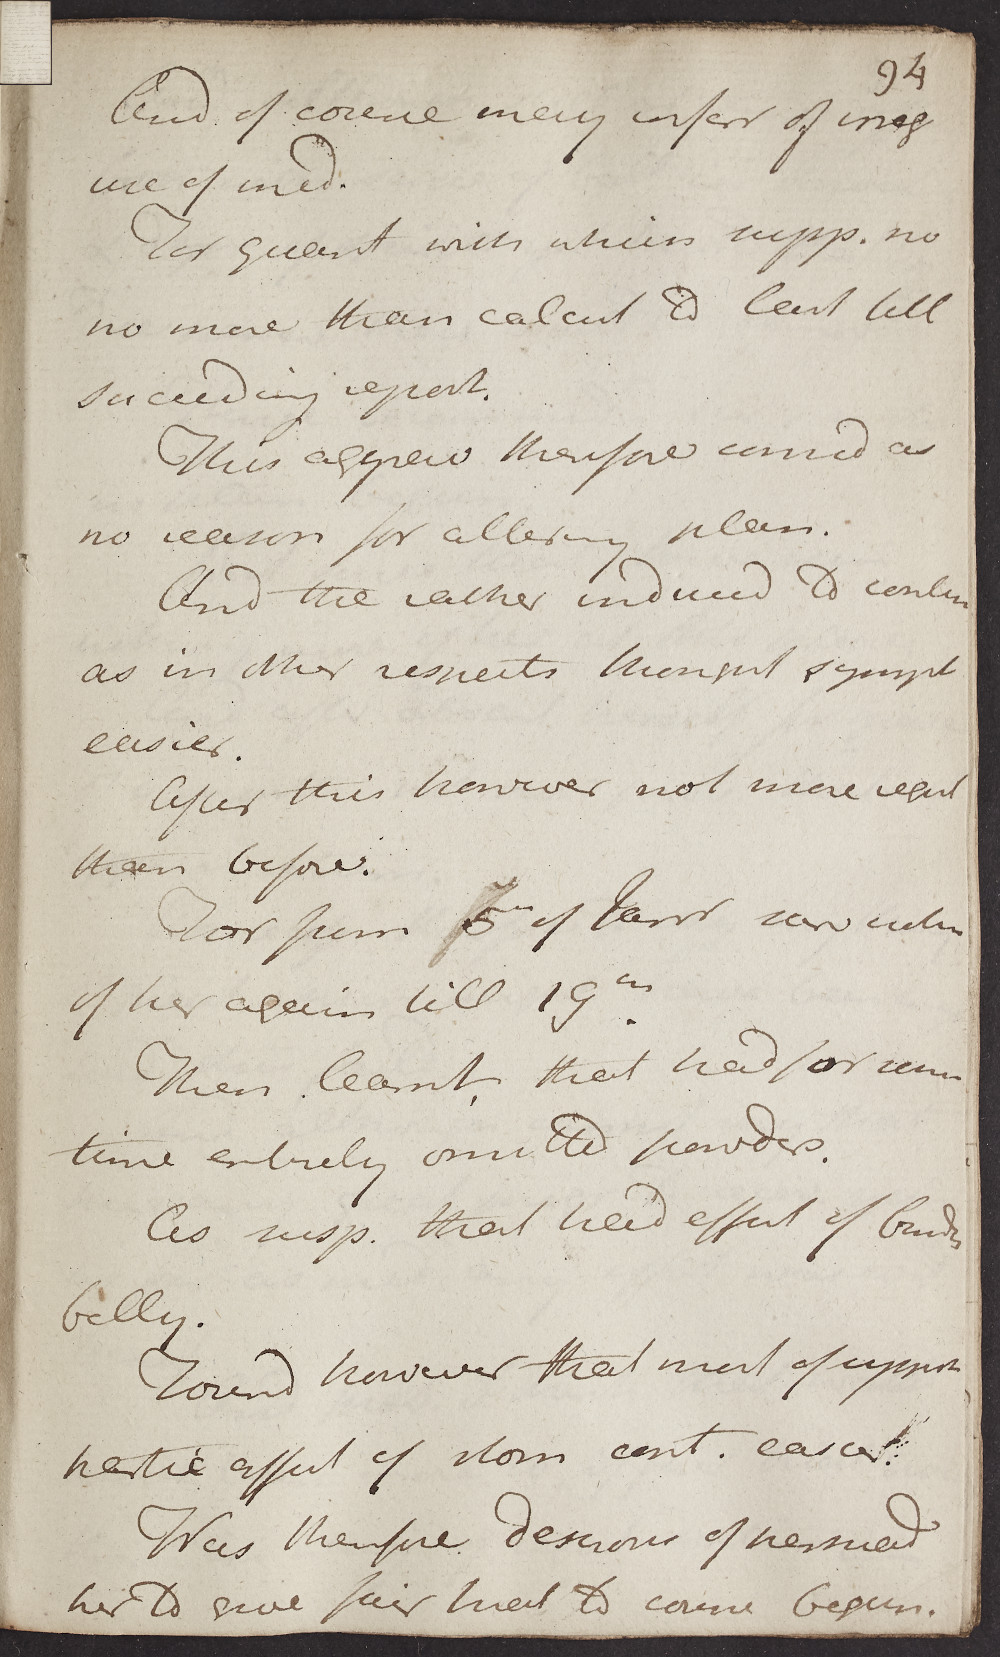 94
And of course many infer of irreg
use of med.
For quant with which supp. no
no more than calcul to last till
succeeding report.
This agreed therefore consid as
no reason for altering plan.
And the rather induced to contin
as in other respects thought sympt
easier.
After this however not more regul
than before.
For from 5th of Janr saw
of her again till 19th.
Then learnt, that had for some
time entirely omitted powders.
As susp. that had effect of bindg
belly.
Found however that most of
affect of stom cont. easier.
Was therefore desirous of persuad
her to give fair trial to course begun.